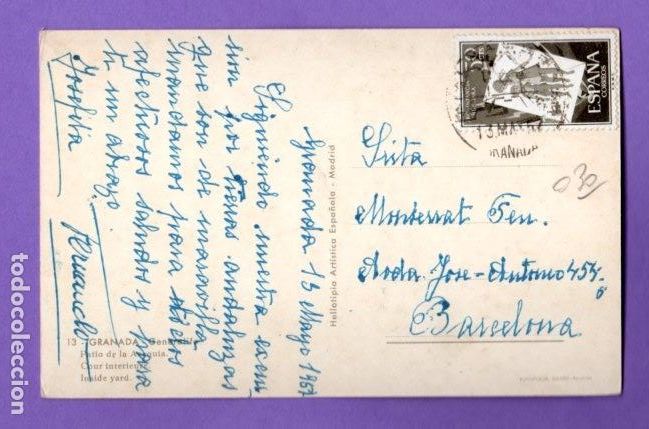 Granada 13 Mayo 1957
Siguiendo nuestra excur
sion por tierras andaluzas
que son de maravilla
mandamos para todos
afectuosos saludos y para
ti un abrazo.
Josefita Fernando
Heliotipia Artística Española - Madrid
13 - GRANADA. Generalife.
Patio de la Acequia.
Cour interieur.
Inside yard.
ESPAÑA
CORREOS
13 MAY
GRANADA
030
Srita
Montserrat Fen.
Avda. Jose-Antonio 454.
Barcelona
todocoleccion